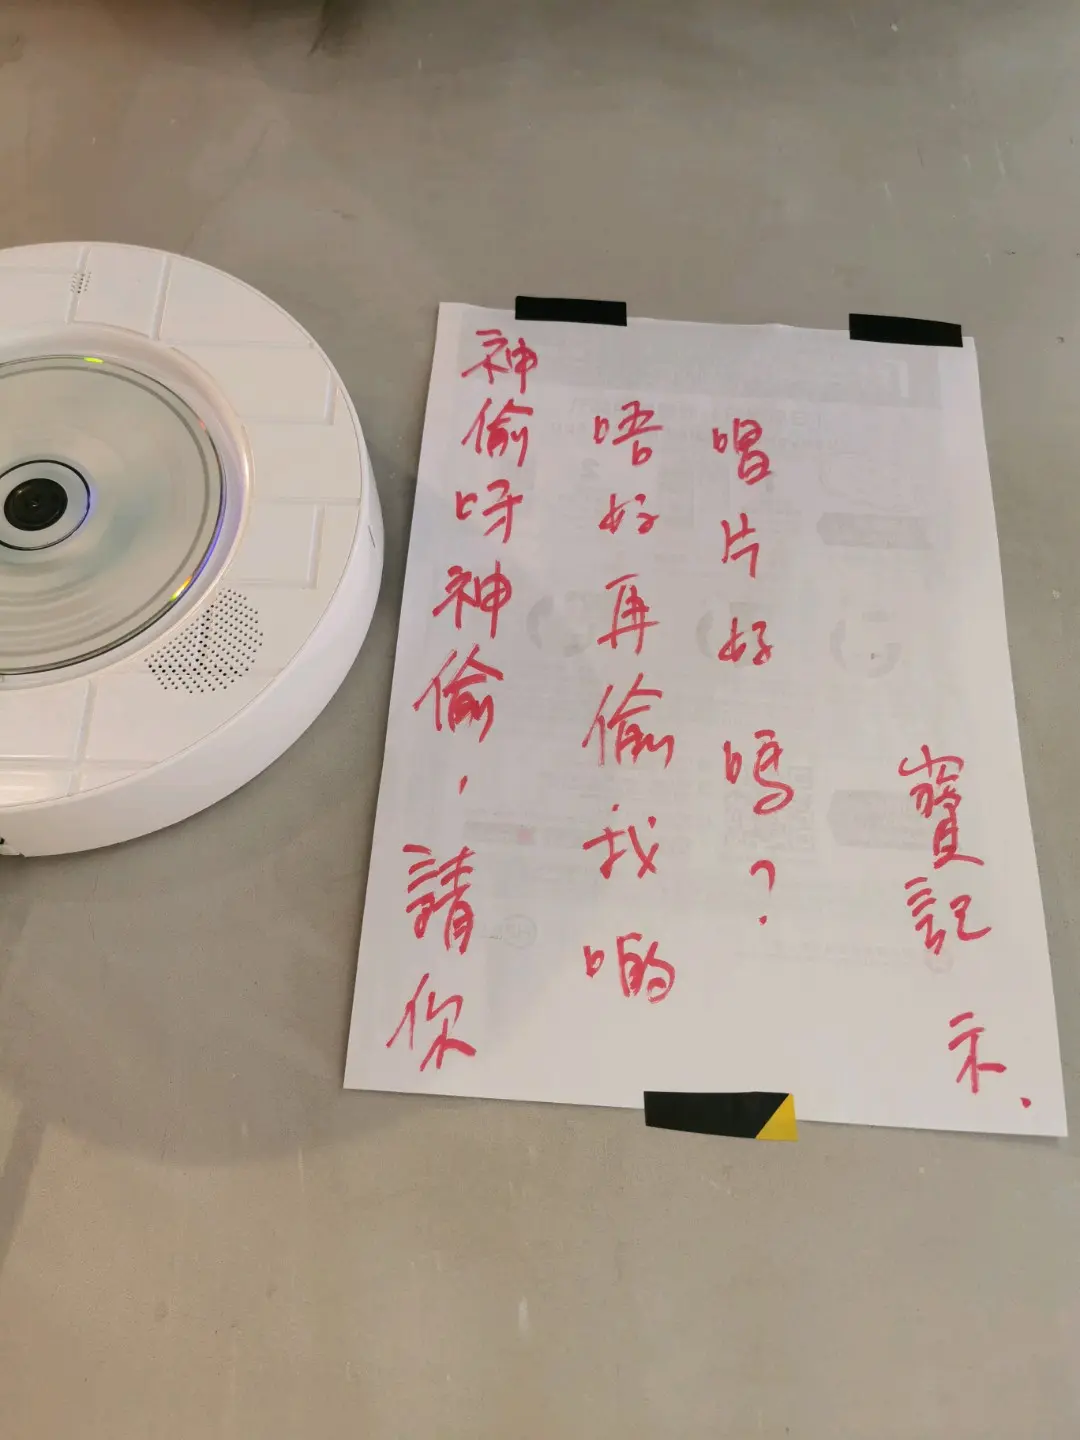 神偷呀神偷，請你
唔好再偷我啲
唱片好嗎？
寶記
示.